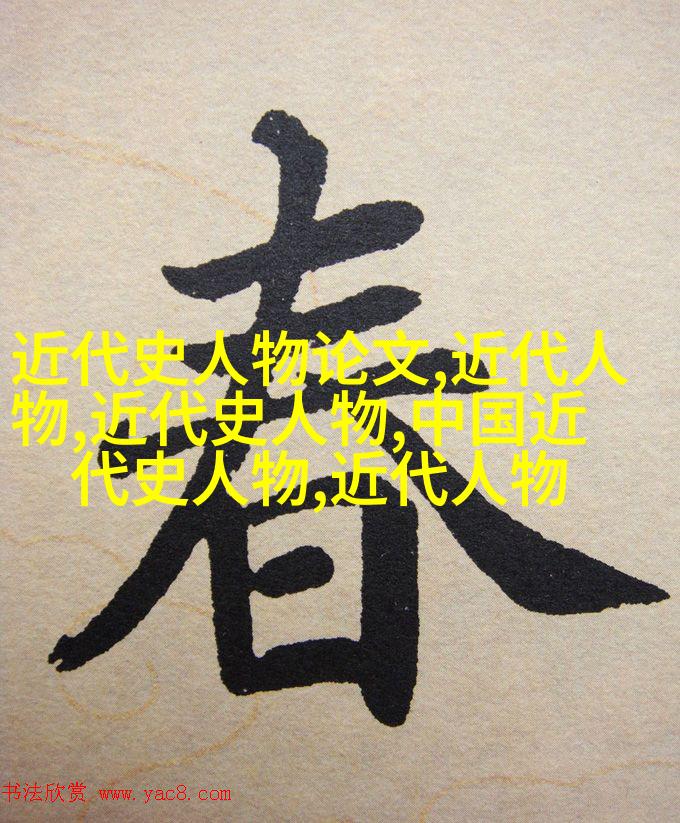 春
近代史人物论文,近代人
物,近代史人物,中国近
代史人物,近代人物
书法欣赏 www.yac8.com